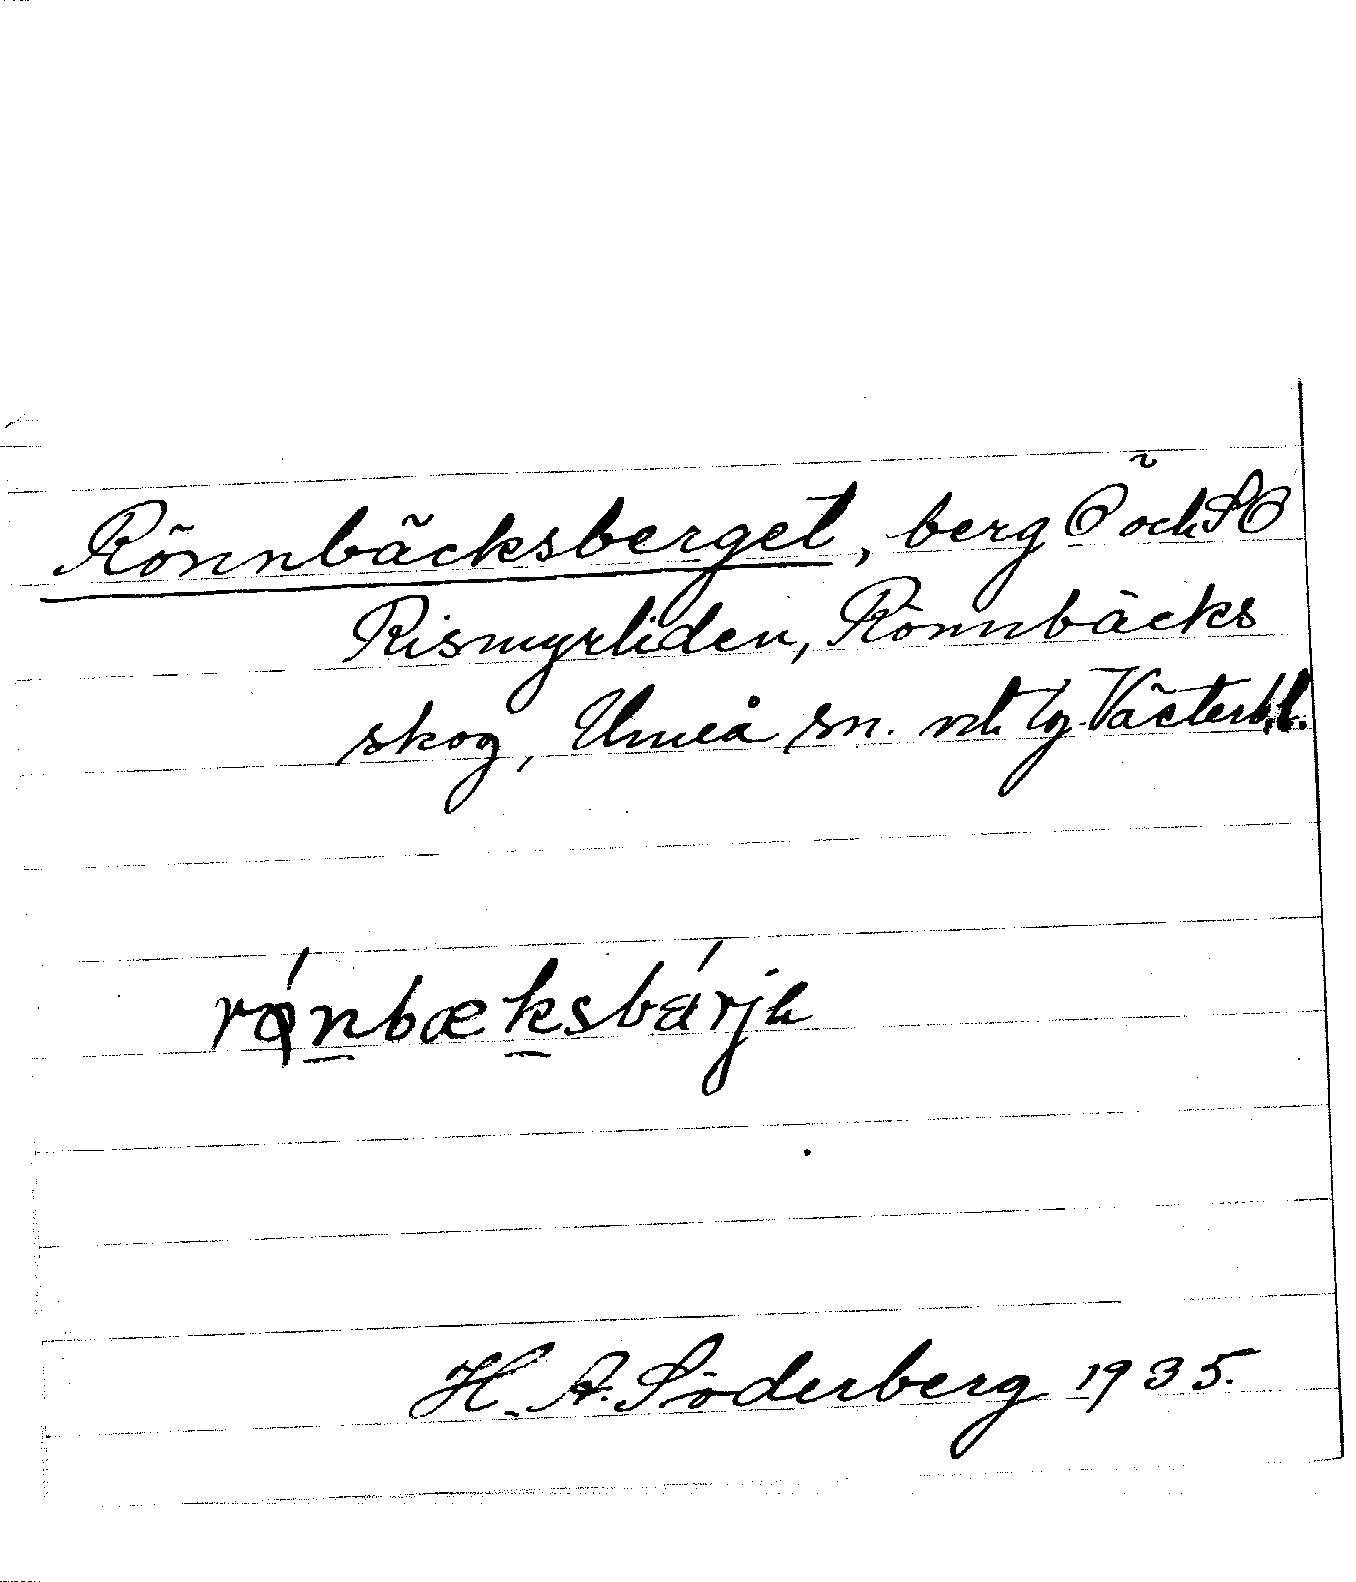 Rönnbäcksberget, berg Ö och SO
Rismyrliden, Rönnbäcks
skog, Umeå sn. och tg Västerb. l.
H. A. Söderberg 1935.